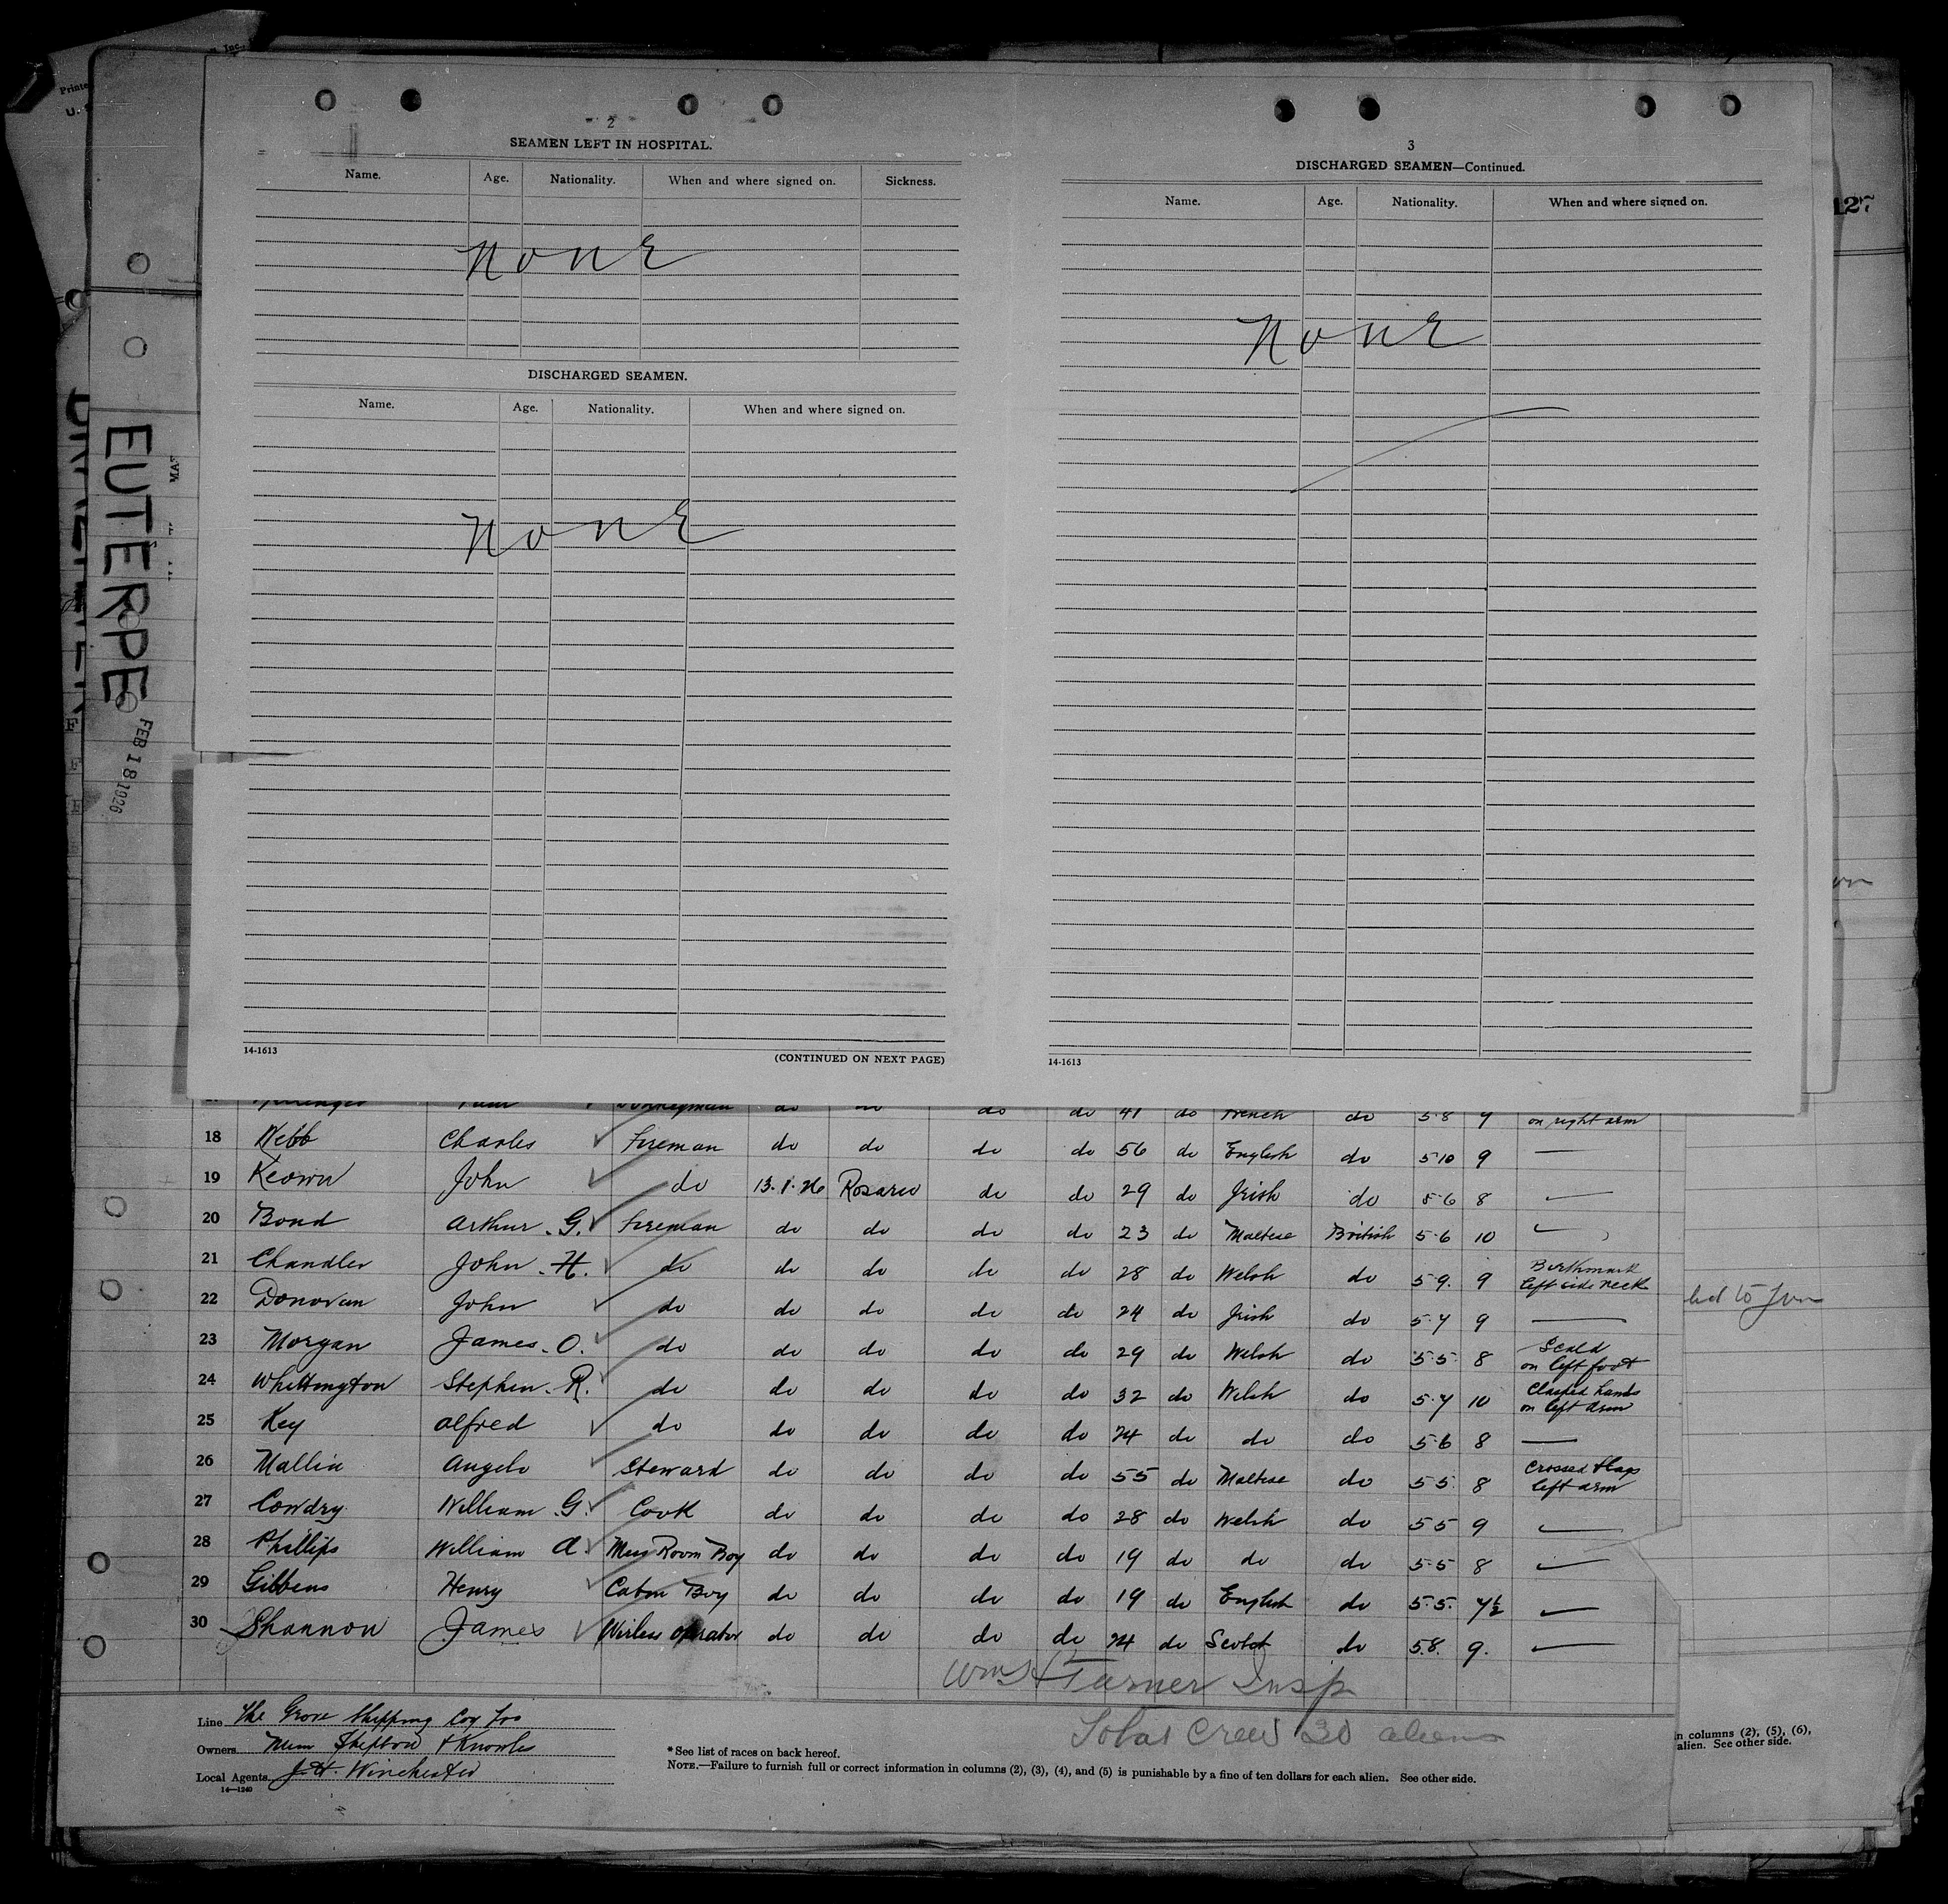 2
SEAMEN LEFT IN HOSPITAL.
Name. Age. Nationality. When and where signed on. Sickness.
None
DISCHARGED SEAMEN.
Name. Age. Nationality. When and where signed on.
None
14-1613 (CONTINUED ON NEXT PAGE)
3
DISCHARGED SEAMEN—Continued.
Name. Age. Nationality. When and where signed on.
None
14-1613
127
EUTERPE
FEB 18 1926
Donkeyman do do do do 41 do French do 5 8 9 on right arm
18 Webb Charles Fireman do do do do 56 do English do 5 10 9 —
19 Keown John do 13.1.26 Rosario do do 29 do Irish do 5 6 8 —
20 Bond Arthur. G. Fireman do do do do 23 do Maltese British 5 6 10 —
21 Chandler John. H. do do do do do 28 do Welsh do 5 9. 9 Birthmark left side neck
22 Donovan John do do do do do 24 do Irish do 5 7 9 —
23 Morgan James. O. do do do do do 29 do Welsh do 5 5 8 Scald on left foot
24 Whittington Stephen. R. do do do do do 32 do Welsh do 5 7 10 Clasped hands on left arm
25 Key Alfred do do do do do 24 do do do 5 6 8 —
26 Mallia Angelo Steward do do do do 55 do Maltese do 5 5 8 Crossed flags left arm
27 Cowdry William. G. Cook do do do do 28 do Welsh do 5 5 9 —
28 Phillips William A. Mess Room Boy do do do do 19 do do do 5 5 8 —
29 Gibbens Henry Cabin Boy do do do do 19 do English do 5.5. 7½ —
30 Shannon James Wireless operator do do do do 24 do Scotch do 5.8. 9. —
Wm H Turner Insp
Total Crew 30 aliens
Line The Grove Shipping Coy
Owners & Knowles
Local Agents J. H. Winchester
14—1240
*See list of races on back hereof.
NOTE.—Failure to furnish full or correct information in columns (2), (3), (4), and (5) is punishable by a fine of ten dollars for each alien. See other side.
n columns (2), (5), (6),
alien. See other side.